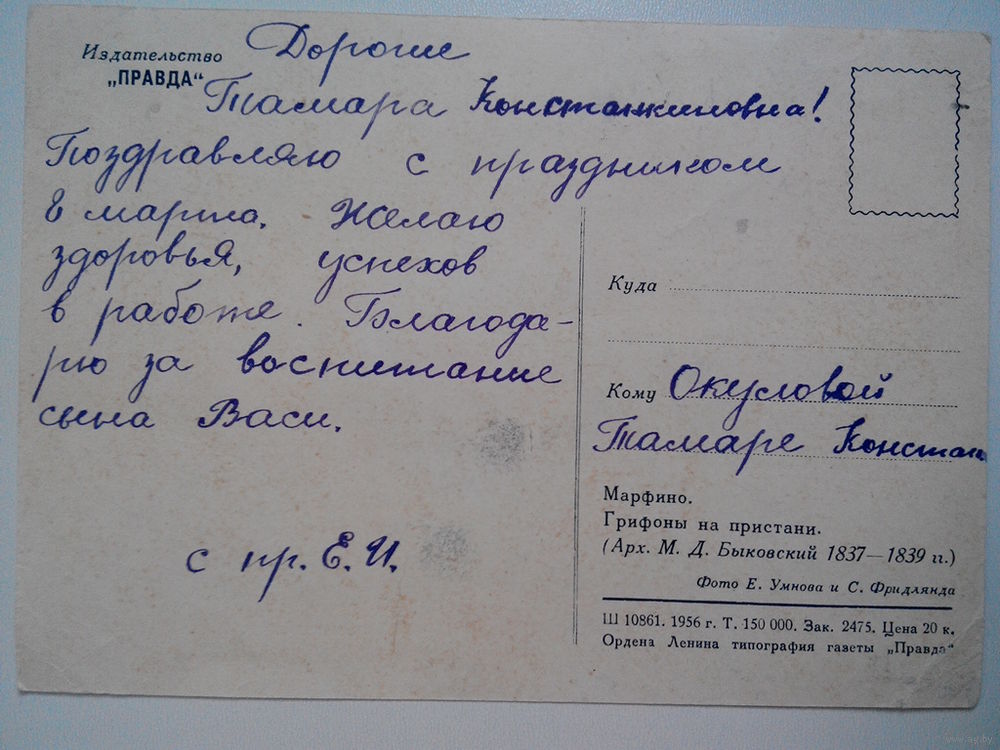 Издательство
„ПРАВДА“
Дорогие
Тамара Константиновна!
Поздравляю с праздником
8 марта. Желаю
здоровья, успехов
в работе. Благода-
рю за воспитание
сына Васи.
с пр. Е. И.
Куда
Кому Окуловой
Тамаре Констан
Марфино.
Грифоны на пристани.
(Арх. М. Д. Быковский 1837—1839 гг.)
Фото Е. Умнова и С. Фридлянда
Ш 10861. 1956 г. Т. 150 000. Зак. 2475. Цена 20 к.
Ордена Ленина типография газеты „Правда“
www.ay.by